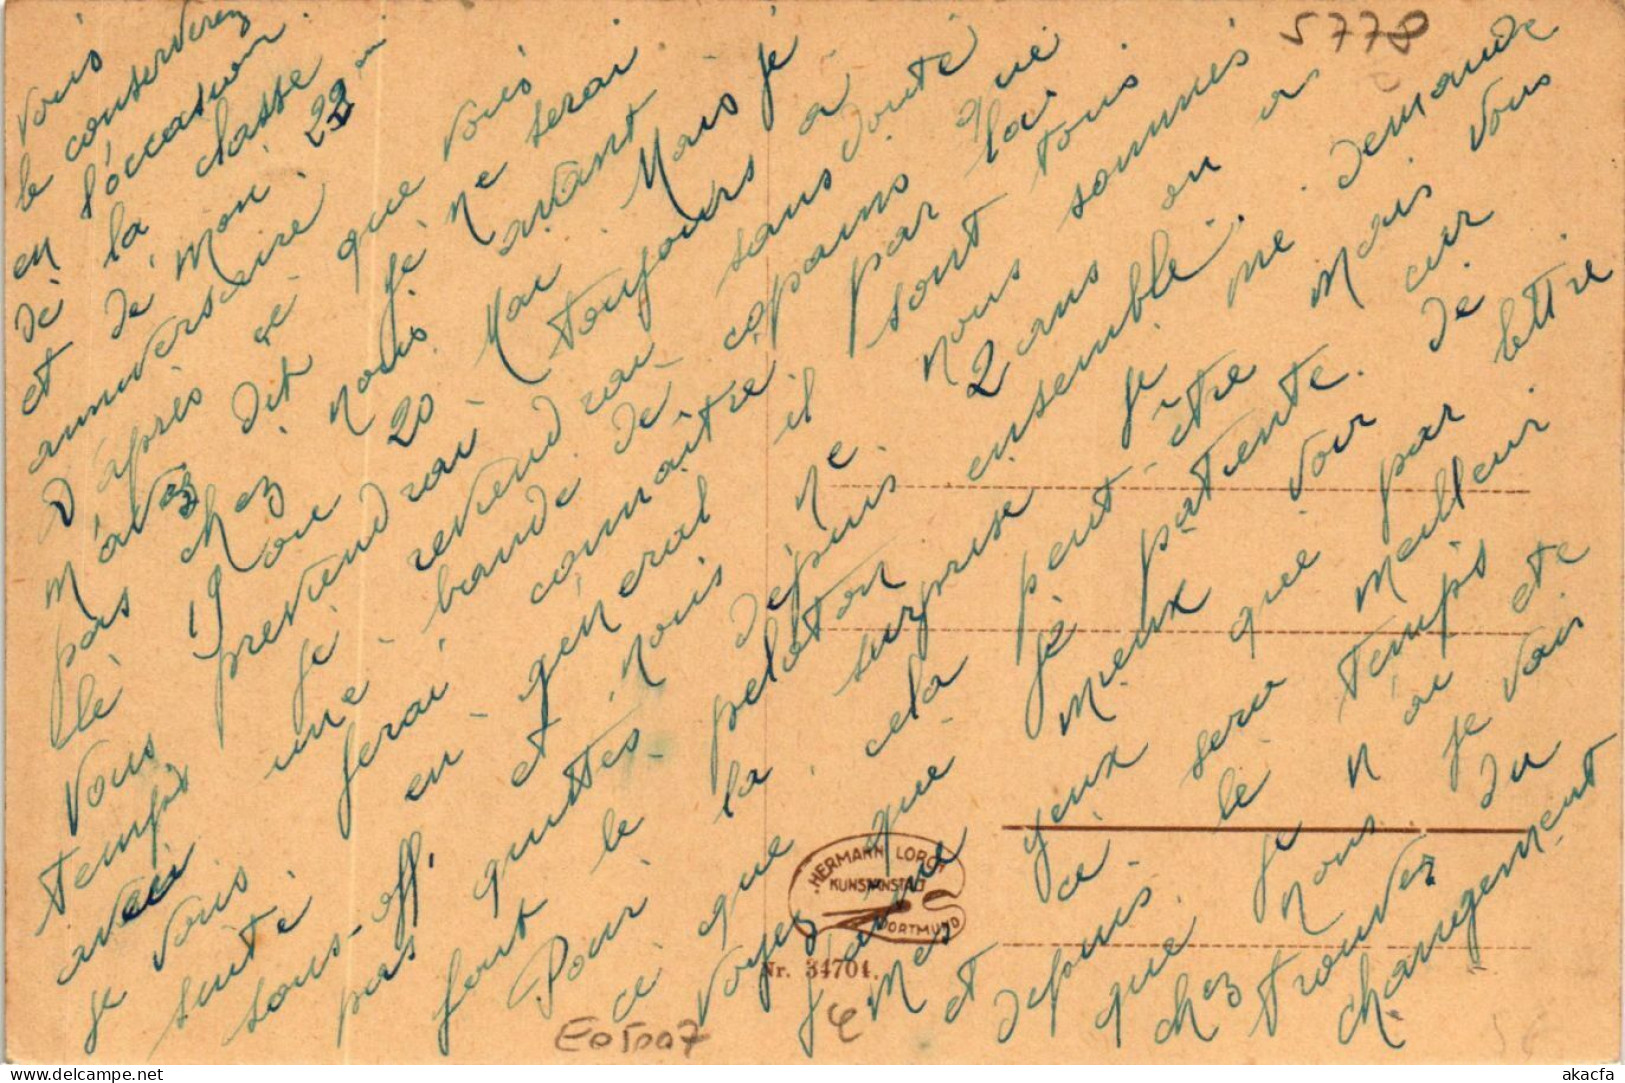 vous
le conserverez
en l'occasion
de la classe
et de mon 22
anniversaire
D'après ce que vous
m'avez dit je ne serai
pas chez nous avant
le 19 ou 20 Mai. Mais je
vous previendrai toujours à
temps je reviendrai sans doute
avec une bande de copains que
je vous ferai connaître par la
suite. en general il sont tous
sous-off. et nous ne nous sommes
pas quittes depuis 2 ans on a
fait le peloton ensemble.
Pour la surprise je me demande
ce que cela peut-être mais vous
voyez que je patiente. car
que mieux voir de
mes yeux que par lettre
et ce sera meilleur.
depuis le temps
que je n'ai ete
chez nous je vais
trouver du
changement
5778
HERMANN LORCH
KUNSTANSTALT
DORTMUND
Nr. 34704.
akacfa